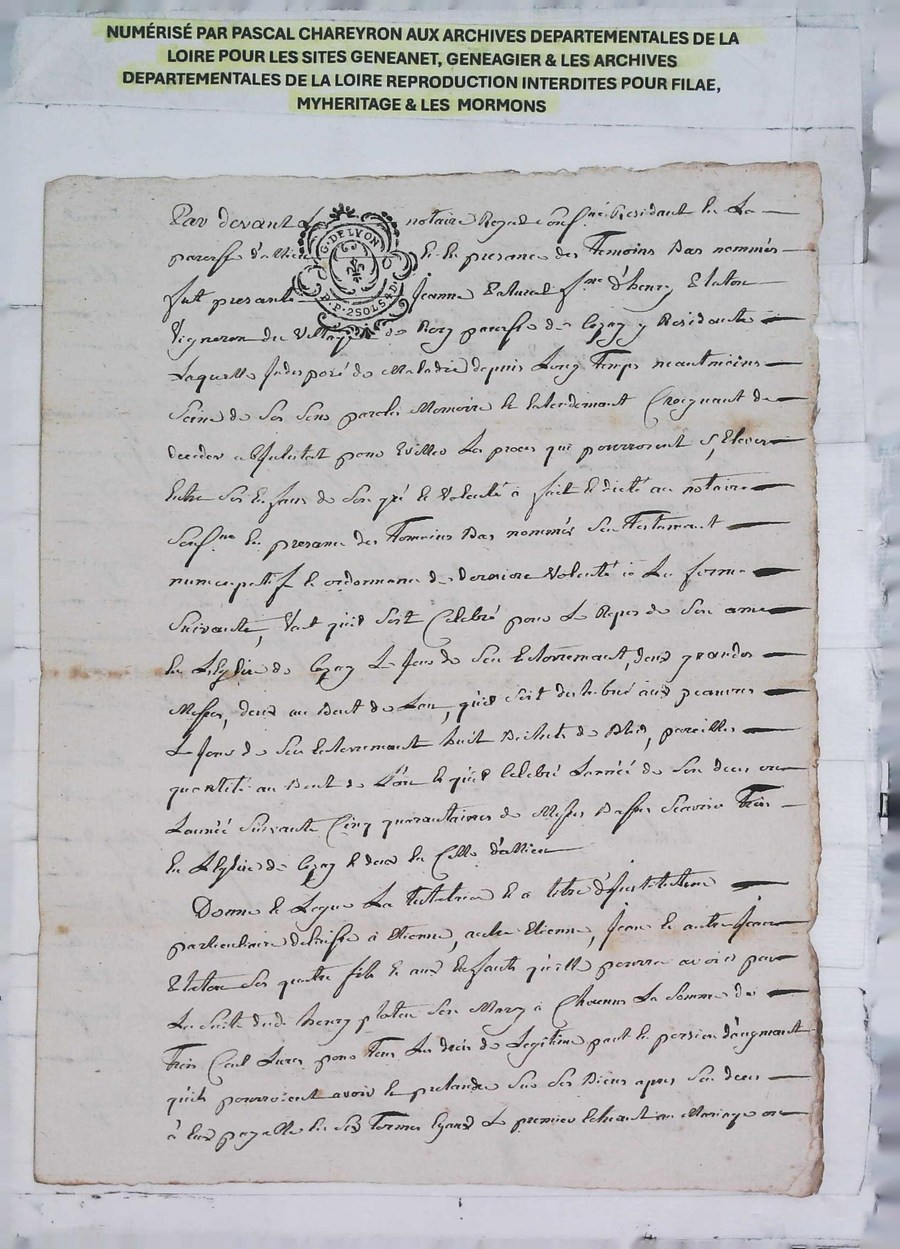 NUMÉRISÉ PAR PASCAL CHAREYRON AUX ARCHIVES DEPARTEMENTALES DE LA
LOIRE POUR LES SITES GENEANET, GENEAGIER & LES ARCHIVES
DEPARTEMENTALES DE LA LOIRE REPRODUCTION INTERDITES POUR FILAE,
MYHERITAGE & LES MORMONS
Par devant Le notaire Royal Residant en La
G. DE LYON
2 SOLS 4 D
d'allieu & en presance des Temoins Bas nommés
fut presante Jeanne fme d'henry
Vigneron du Village de de Cezay y Residante
Laquelle Indisposé de Maladie depuis Long Temps neautmoins
Seine de Ses Sens parolle Memoire & Entendemant Craignant de
deceder pour Eviter Les proces qui pourroient S'Elever
Entre Ses Enfans de Son gré & Volonté à fait & dicté au notaire
en presance des Temoins Bas nommés Son Testamant
nuncupatif & ordonnance de derniere Volonté en La forme
Suivante, Veut qu'il Soit Celebré pour Le Repos de Son ame
En L'Eglise de Cezay Le Jour de Son Enterremant, deux grandes
Messes, deux au Bout de L'an, qu'il Soit distribué aux peauvres
Le Jour de Son Enterremant huit Bichets de Bled, pareille
quantité au Bout de L'an & qu'il Celebré L'année de Son deces ou
L'année Suivante Cinq quarantaines de Messes Basses Scavoir Trois
En L'Eglise de Cezay & deux En Celle d'allieu
Donne & Legue La Testatrice & à titre d'Institution
particuliaire à Etienne, autre Etienne, Jean & autre Jean
Ses quatre fils & aux Enfants qu'elle pourra avoir par
La Suite dud. henry Son Mary à Chacuns La Somme de
Trois Cent Livres pour Tous Les droits de Legitime part & portion d'augmant
qu'ils pourroient avoir & pretandre Sur Ses Biens apres Son deces
à Eux payable En Six Termes Egaux Le premier Echeant au Mariage ou